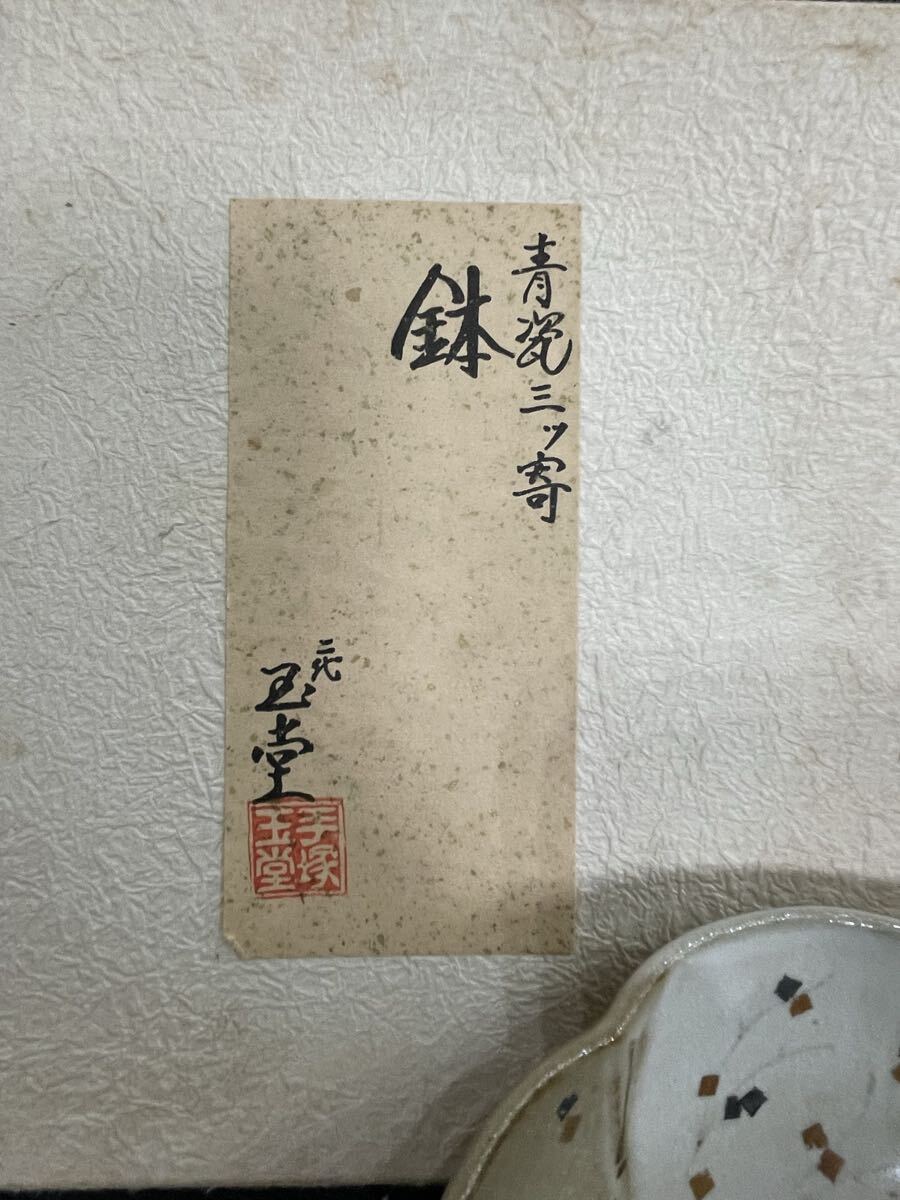 青瓷三ッ寄
鉢
二代
玉堂
手塚
玉堂